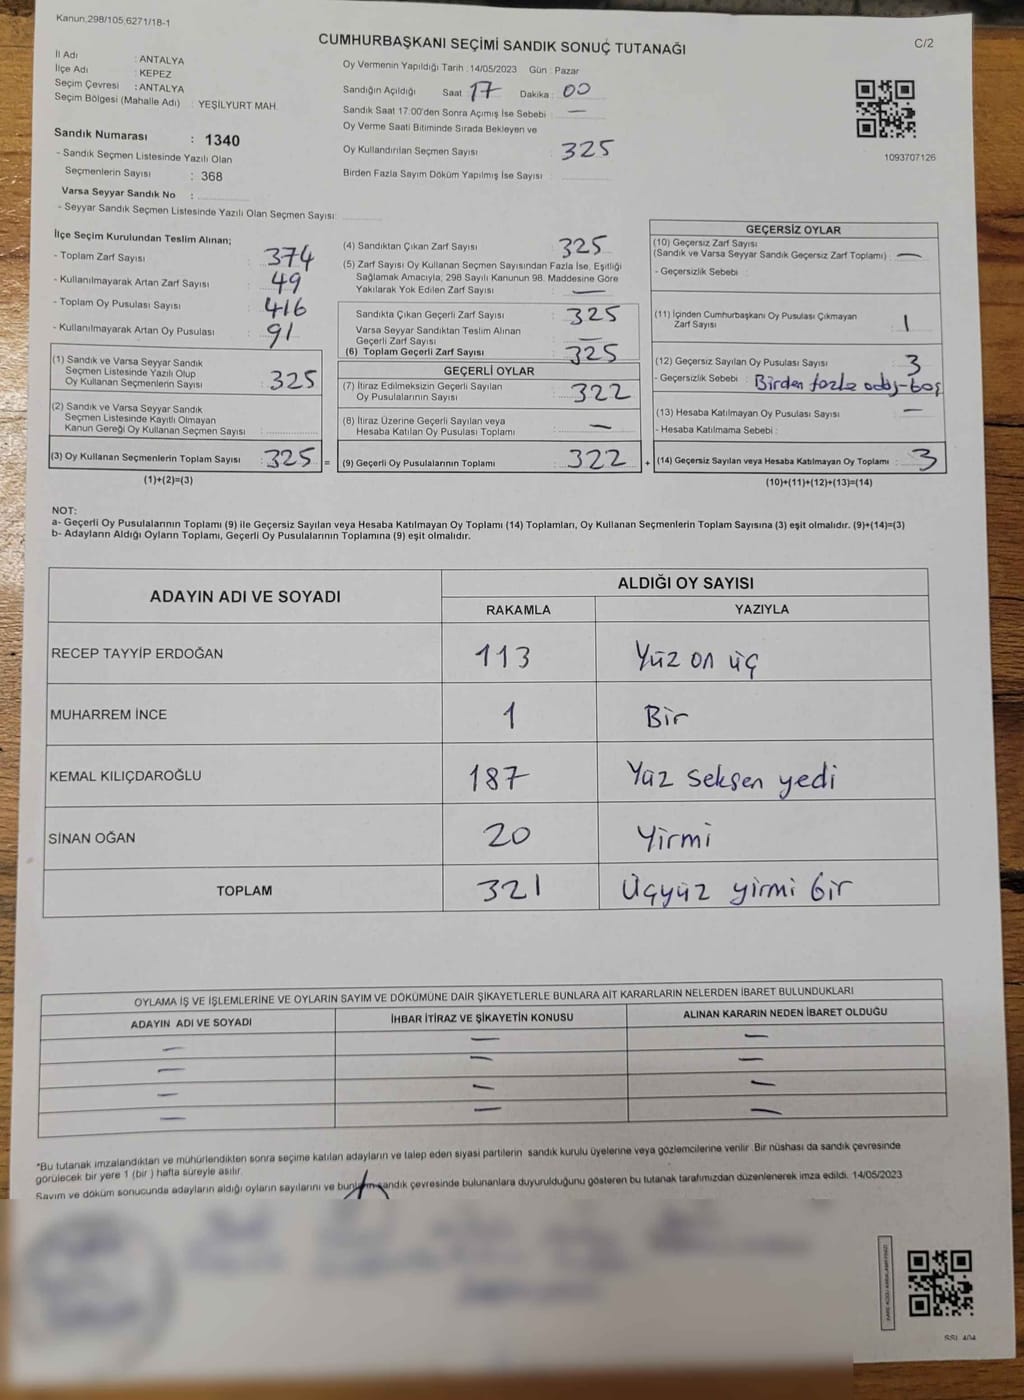 Kanun,298/105,6271/18-1
CUMHURBAŞKANI SEÇİMİ SANDIK SONUÇ TUTANAĞI
C/2
İl Adı : ANTALYA
İlçe Adı : KEPEZ
Seçim Çevresi : ANTALYA
Seçim Bölgesi (Mahalle Adı) : YEŞİLYURT MAH.
Oy Vermenin Yapıldığı Tarih :14/05/2023 Gün : Pazar
Sandığın Açıldığı Saat 17 Dakika : 00
Sandık Saat 17:00'den Sonra Açımış İse Sebebi : —
Oy Verme Saati Bitiminde Sırada Bekleyen ve
Oy Kullandırılan Seçmen Sayısı : 325
Birden Fazla Sayım Döküm Yapılmış İse Sayısı :
1093707126
Sandık Numarası : 1340
- Sandık Seçmen Listesinde Yazılı Olan
Seçmenlerin Sayısı : 368
Varsa Seyyar Sandık No :
- Seyyar Sandık Seçmen Listesinde Yazılı Olan Seçmen Sayısı:
İlçe Seçim Kurulundan Teslim Alınan;
- Toplam Zarf Sayısı : 374
- Kullanılmayarak Artan Zarf Sayısı : 49
- Toplam Oy Pusulası Sayısı : 416
- Kullanılmayarak Artan Oy Pusulası : 91
(1) Sandık ve Varsa Seyyar Sandık
Seçmen Listesinde Yazılı Olup
Oy Kullanan Seçmenlerin Sayısı : 325
(2) Sandık ve Varsa Seyyar Sandık
Seçmen Listesinde Kayıtlı Olmayan
Kanun Gereği Oy Kullanan Seçmen Sayısı :
(3) Oy Kullanan Seçmenlerin Toplam Sayısı : 325 =
(1)+(2)=(3)
(4) Sandıktan Çıkan Zarf Sayısı : 325
(5) Zarf Sayısı Oy Kullanan Seçmen Sayısından Fazla İse, Eşitliği
Sağlamak Amacıyla, 298 Sayılı Kanunun 98. Maddesine Göre
Yakılarak Yok Edilen Zarf Sayısı : —
Sandıkta Çıkan Geçerli Zarf Sayısı : 325
Varsa Seyyar Sandıktan Teslim Alınan
Geçerli Zarf Sayısı : —
(6) Toplam Geçerli Zarf Sayısı : 325
GEÇERLİ OYLAR
(7) İtiraz Edilmeksizin Geçerli Sayılan
Oy Pusulalarının Sayısı : 322
(8) İtiraz Üzerine Geçerli Sayılan veya
Hesaba Katılan Oy Pusulası Toplamı : —
(9) Geçerli Oy Pusulalarının Toplamı : 322 +
GEÇERSİZ OYLAR
(10) Geçersiz Zarf Sayısı
(Sandık ve Varsa Seyyar Sandık Geçersiz Zarf Toplamı) : —
- Geçersizlik Sebebi :
(11) İçinden Cumhurbaşkanı Oy Pusulası Çıkmayan
Zarf Sayısı : 1
(12) Geçersiz Sayılan Oy Pusulası Sayısı : 3
- Geçersizlik Sebebi : Birden fazla aday-boş
(13) Hesaba Katılmayan Oy Pusulası Sayısı : —
- Hesaba Katılmama Sebebi :
(14) Geçersiz Sayılan veya Hesaba Katılmayan Oy Toplamı : 3
(10)+(11)+(12)+(13)=(14)
NOT:
a- Geçerli Oy Pusulalarının Toplamı (9) ile Geçersiz Sayılan veya Hesaba Katılmayan Oy Toplamı (14) Toplamları, Oy Kullanan Seçmenlerin Toplam Sayısına (3) eşit olmalıdır. (9)+(14)=(3)
b- Adayların Aldığı Oyların Toplamı, Geçerli Oy Pusulalarının Toplamına (9) eşit olmalıdır.
ADAYIN ADI VE SOYADI ALDIĞI OY SAYISI
RAKAMLA YAZIYLA
RECEP TAYYİP ERDOĞAN 113 Yüz on üç
MUHARREM İNCE 1 Bir
KEMAL KILIÇDAROĞLU 187 Yüz seksen yedi
SİNAN OĞAN 20 Yirmi
TOPLAM 321 Üçyüz yirmi bir
OYLAMA İŞ VE İŞLEMLERİNE VE OYLARIN SAYIM VE DÖKÜMÜNE DAİR ŞİKAYETLERLE BUNLARA AİT KARARLARIN NELERDEN İBARET BULUNDUKLARI
ADAYIN ADI VE SOYADI İHBAR İTİRAZ VE ŞİKAYETİN KONUSU ALINAN KARARIN NEDEN İBARET OLDUĞU
— — —
— — —
— — —
— — —
"Bu tutanak imzalandıktan ve mühürlendikten sonra seçime katılan adayların ve talep eden siyasi partilerin sandık kurulu üyelerine veya gözlemcilerine verilir. Bir nüshası da sandık çevresinde
görülecek bir yere 1 (bir ) hafta süreyle asılır.
Sayım ve döküm sonucunda adayların aldığı oyların sayılarını ve bunların sandık çevresinde bulunanlara duyurulduğunu gösteren bu tutanak tarafımızdan düzenlenerek imza edildi. 14/05/2023